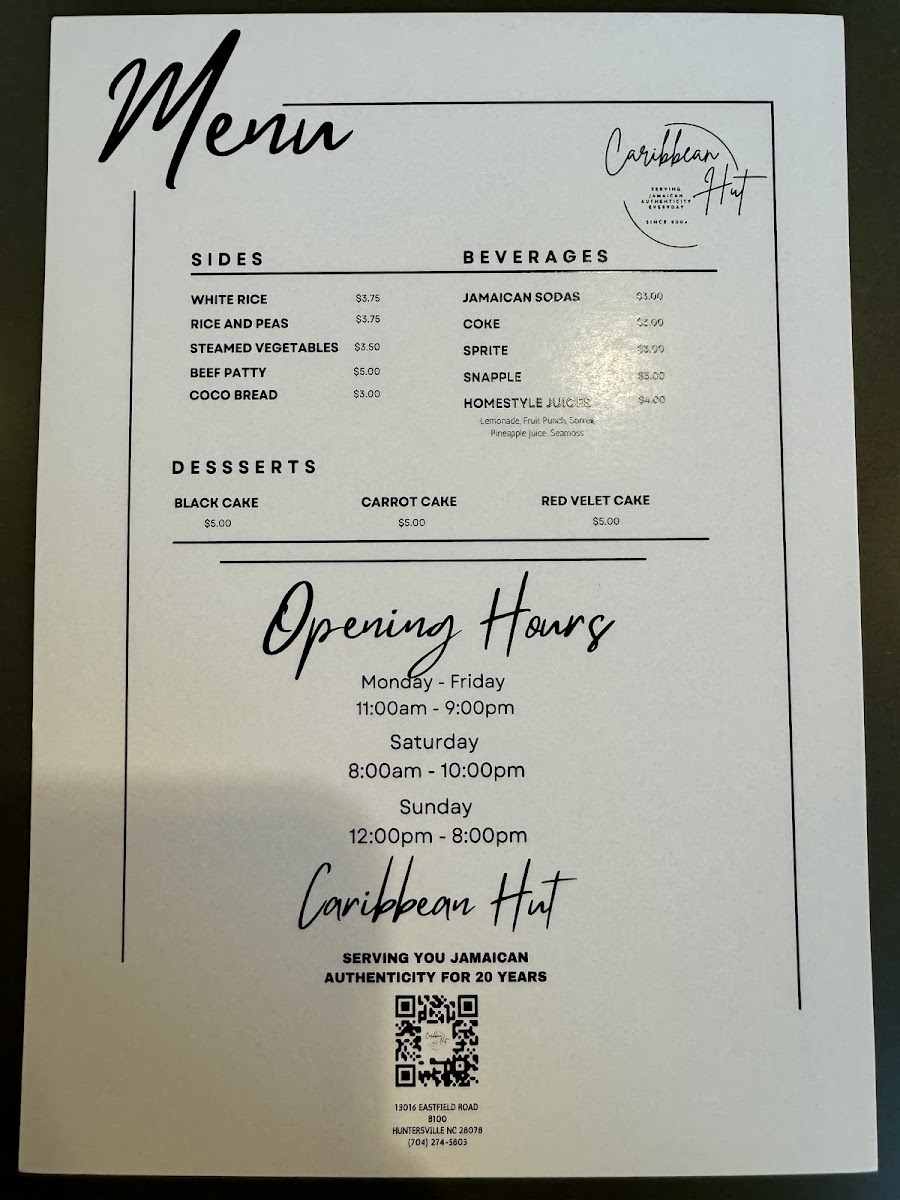 Menu
Caribbean
Hut
SERVING
JAMAICAN
AUTHENTICITY
EVERYDAY
SINCE 2004
SIDES
WHITE RICE $3.75
RICE AND PEAS $3.75
STEAMED VEGETABLES $3.50
BEEF PATTY $5.00
COCO BREAD $3.00
BEVERAGES
JAMAICAN SODAS $3.00
COKE $3.00
SPRITE $3.00
SNAPPLE $3.00
HOMESTYLE JUICES $4.00
Lemonade, Fruit Punch, Sorrel,
Pineapple Juice, Seamoss
DESSSERTS
BLACK CAKE CARROT CAKE RED VELET CAKE
$5.00 $5.00 $5.00
Opening Hours
Monday - Friday
11:00am - 9:00pm
Saturday
8:00am - 10:00pm
Sunday
12:00pm - 8:00pm
Caribbean Hut
SERVING YOU JAMAICAN
AUTHENTICITY FOR 20 YEARS
Caribbean
Hut
13016 EASTFIELD ROAD
B100
HUNTERSVILLE NC 28078
(704) 274-5803